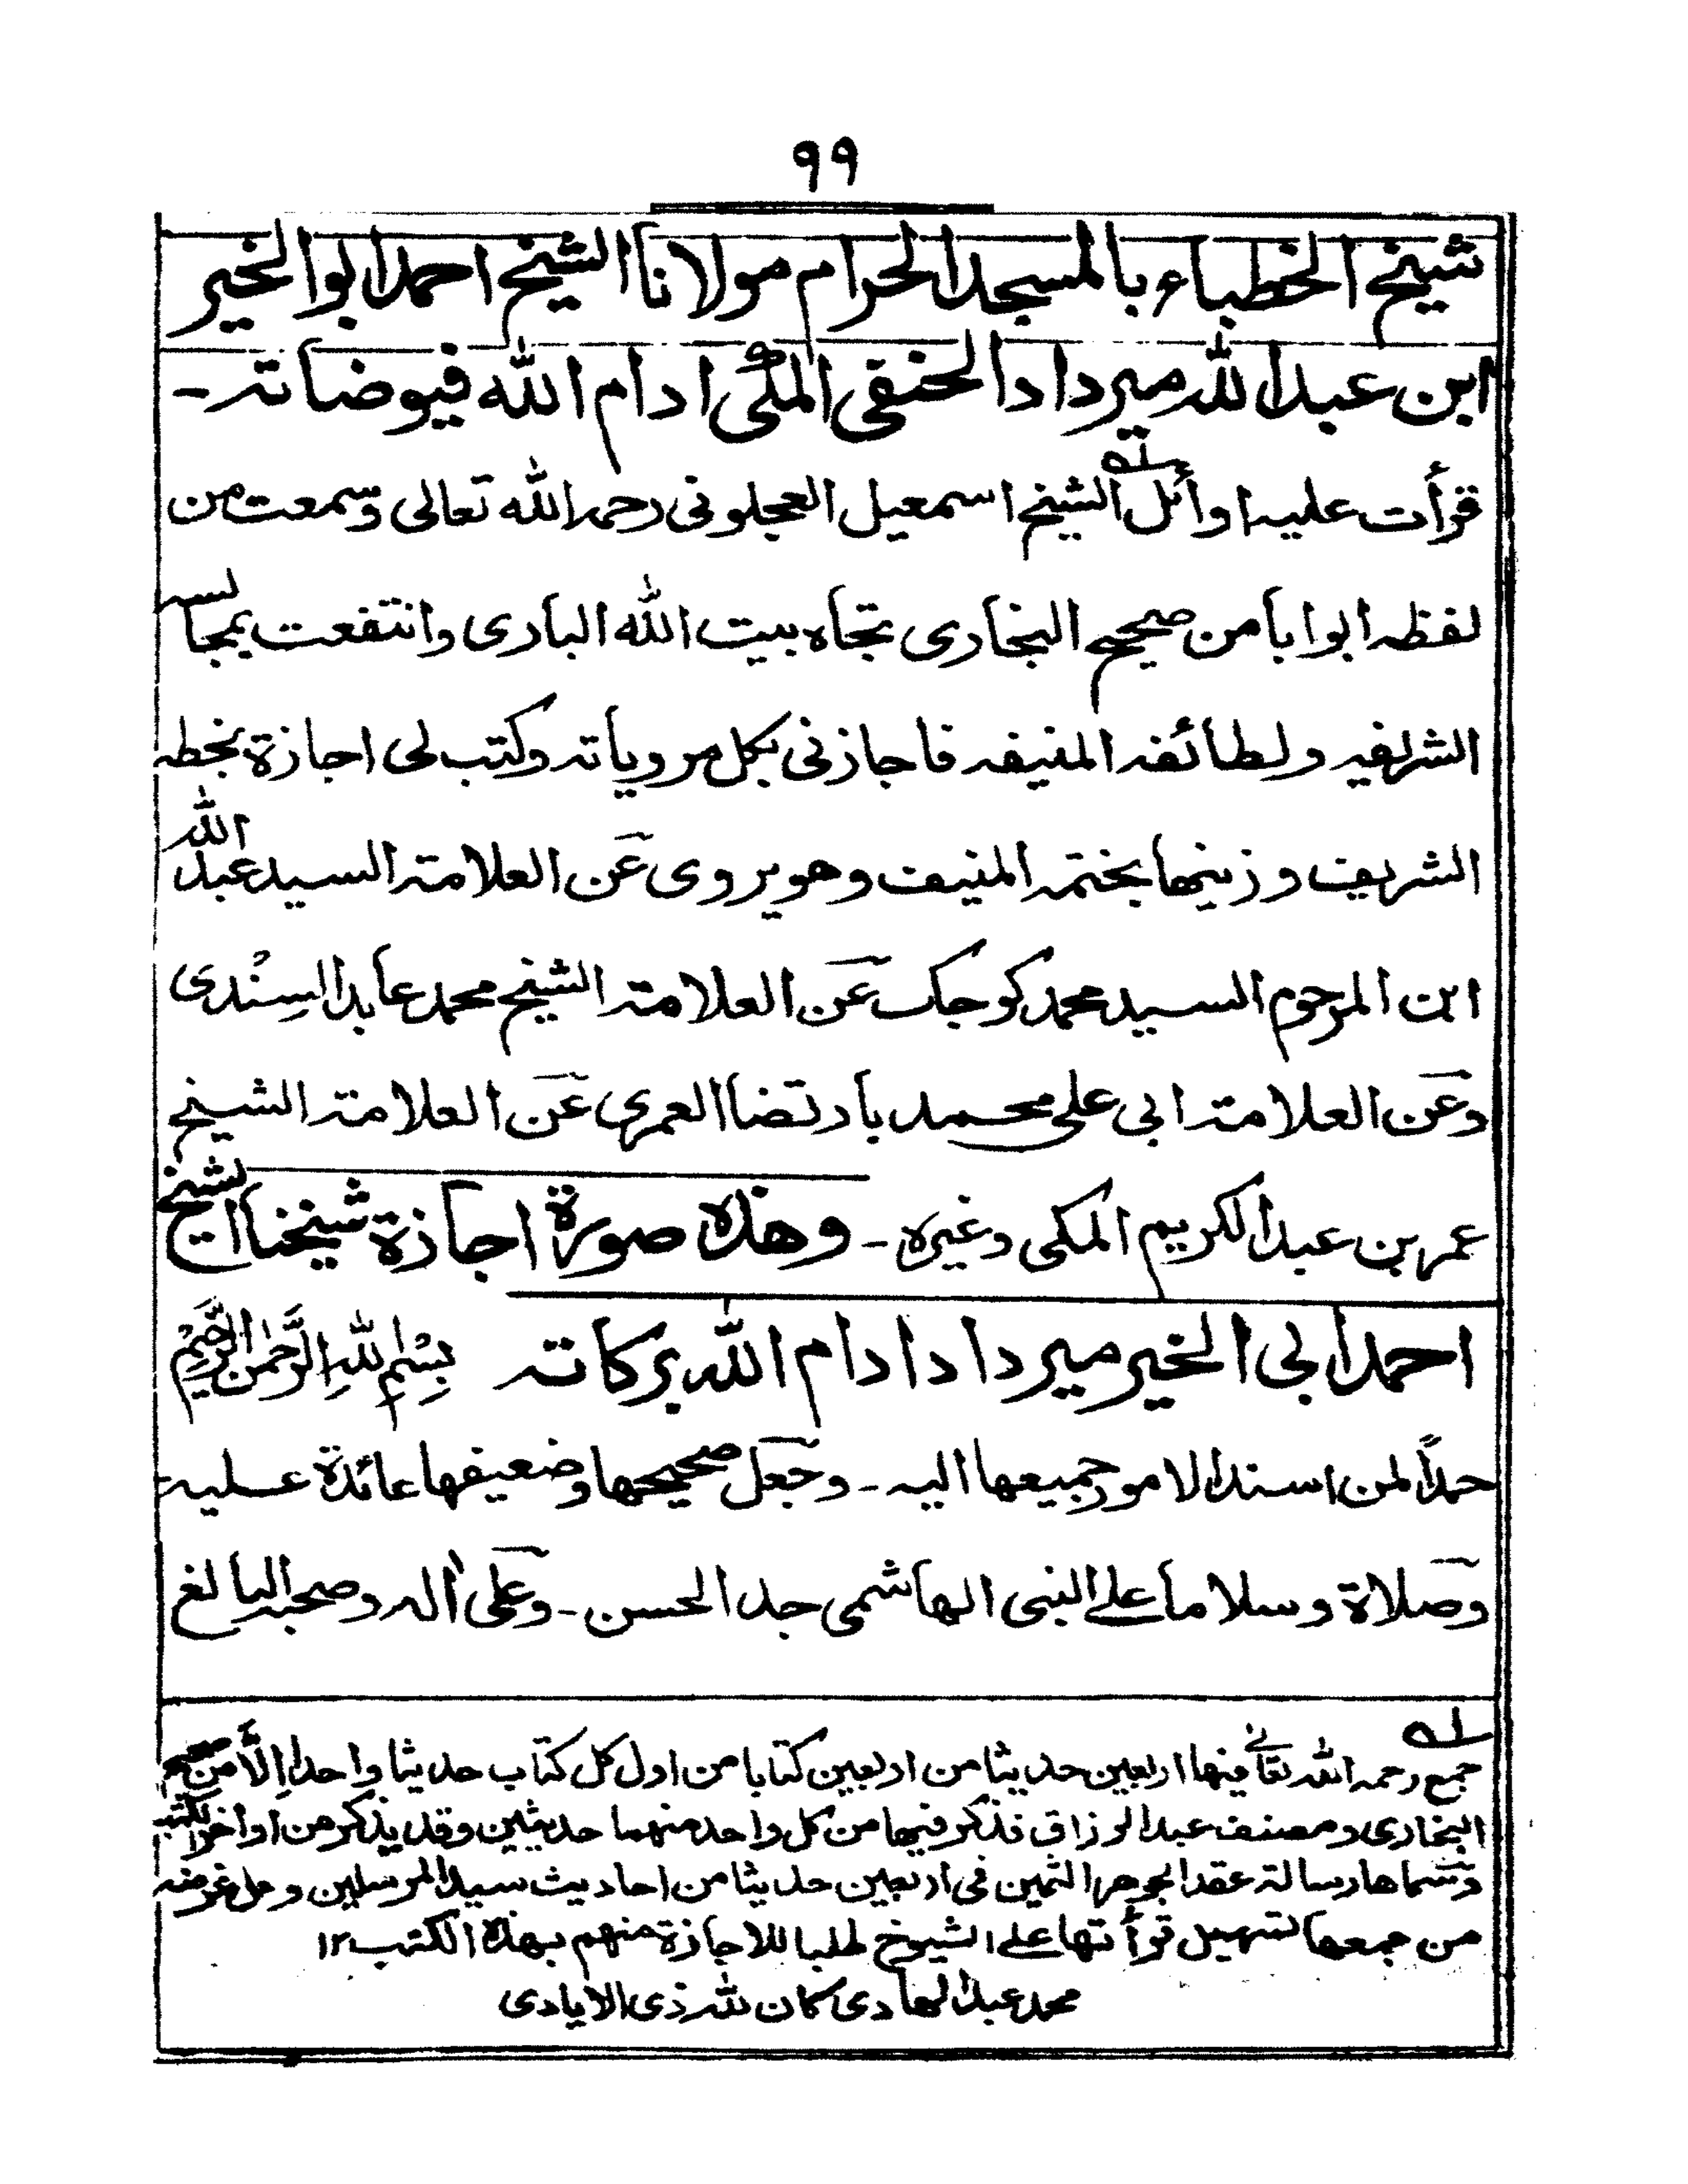 ٩٩
شيخ الخطباء بالمسجد الحرام مولانا الشيخ احمد ابو الخير
ابن عبد الله ميرداد الحنفى المكى ادام الله فيوضاته ـ
قرأت عليه اوائل الشيخ اسمعيل العجلونى رحمه الله تعالى وسمعت من
لفظه ابوابا من صحيح البخارى تجاه بيت الله البارى وانتفعت بمجالسه
الشريفه ولطائفه المنيفه فاجازنى بكل مروياته وكتب لى اجازة بخطه
الشريف وزينها بختمه المنيف وهو يروى عن العلامة السيد عبد الله
ابن المرحوم السيد محمد كوجك عن العلامة الشيخ محمد عابد السِنْدى
وعن العلامة ابى على محمد بارتضا العمرى عن العلامة الشيخ
عمر بن عبد الكريم المكى وغيره ـ وهذه صورة اجازة شيخنا الشيخ
احمد ابى الخير ميرداد ادام الله بركاته بِسْمِ اللهِ الرَّحْمٰنِ الرَّحِيْمِ
حمدًا لمن اسند الامور جميعها اليه ـ وجعل صحيحها وضعيفها عائدة عليه
وصلاة وسلاما على النبى الهاشمى جد الحسن ـ وعلى اٰله وصحبه البالغ
له
جمع رحمه الله تعالى فيها اربعين حديثا من اربعين كتابا من اول كل كتاب حديثا واحدا اِلَّا من صحيح
البخارى ومصنف عبد الرزاق فذكر فيها من كل واحد منهما حديثين وقد يذكر من اواخر الكتب
وسماها رسالة عقد الجوهر الثمين فى اربعين حديثا من احاديث سيد المرسلين وجل غرضه
من جمعها تسهيل قرأتها على الشيوخ طلبا للاجازة منهم بهذه الكتب ١٢
محمد عبد الهادى كان لله ذى الايادى